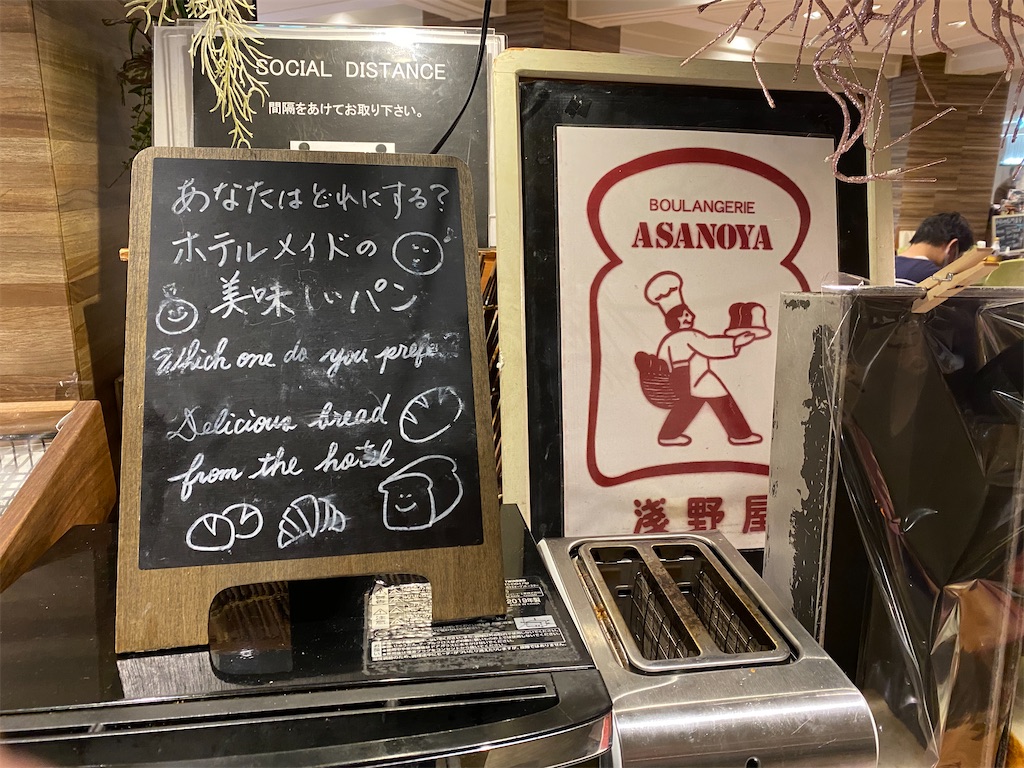 SOCIAL DISTANCE
間隔をあけてお取り下さい。
あなたはどれにする?
ホテルメイドの
美味しいパン
Which one do you prefe
Delicious bread
from the hotel
BOULANGERIE
ASANOYA
浅野屋
2019年製